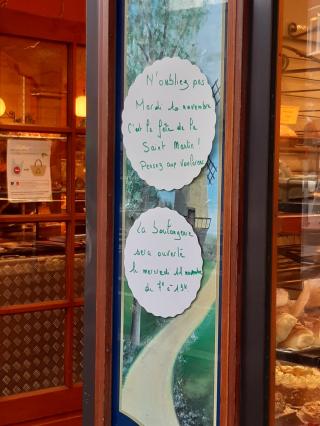 N'oubliez pas
Mardi 10 novembre
C'est la fête de la
Saint Martin !
Pensez aux
La boulangerie
sera ouverte
le mercredi 11 novembre
de 7h à 19h